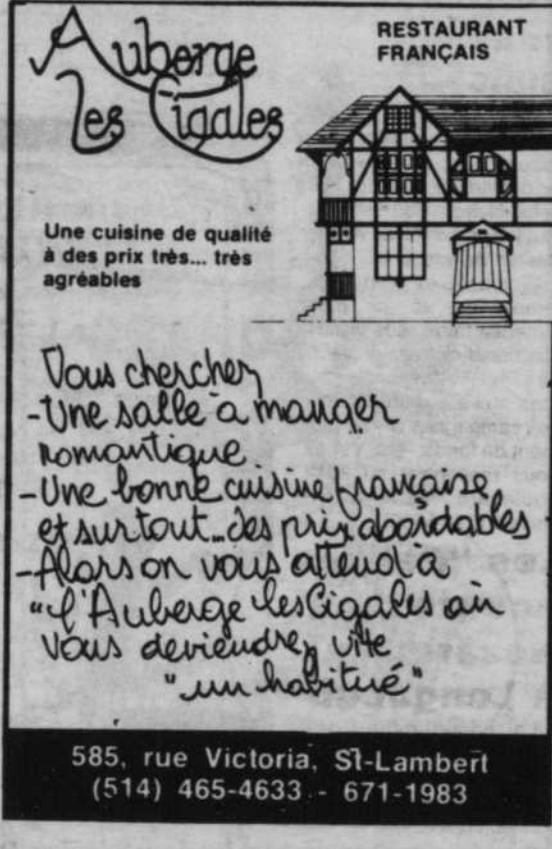 Auberge
les Cigales
RESTAURANT
FRANÇAIS
Une cuisine de qualité
à des prix très... très
agréables
Vous cherchez
-Une salle à manger
romantique
-Une bonne cuisine française
et surtout...des prix abordables
-Alors on vous attend à
"l'Auberge les Cigales où
vous deviendrez vite
"un habitué"
585, rue Victoria, St-Lambert
(514) 465-4633 - 671-1983